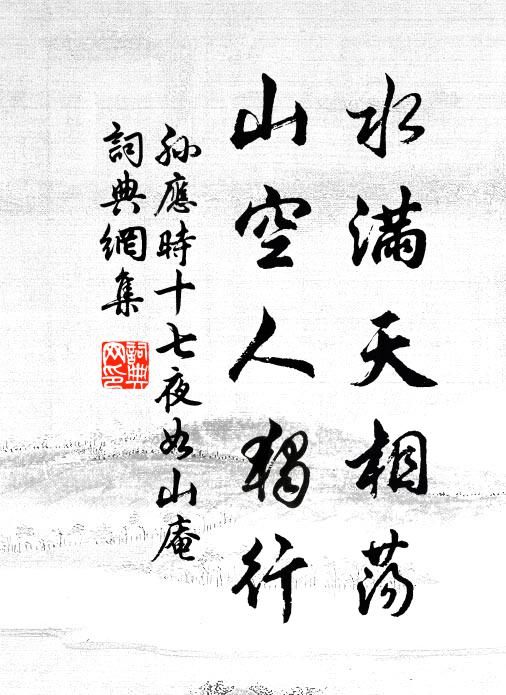 水滿天相蕩
山空人獨行
孫應時十七夜如山庵
詞典網集
詞典
网印